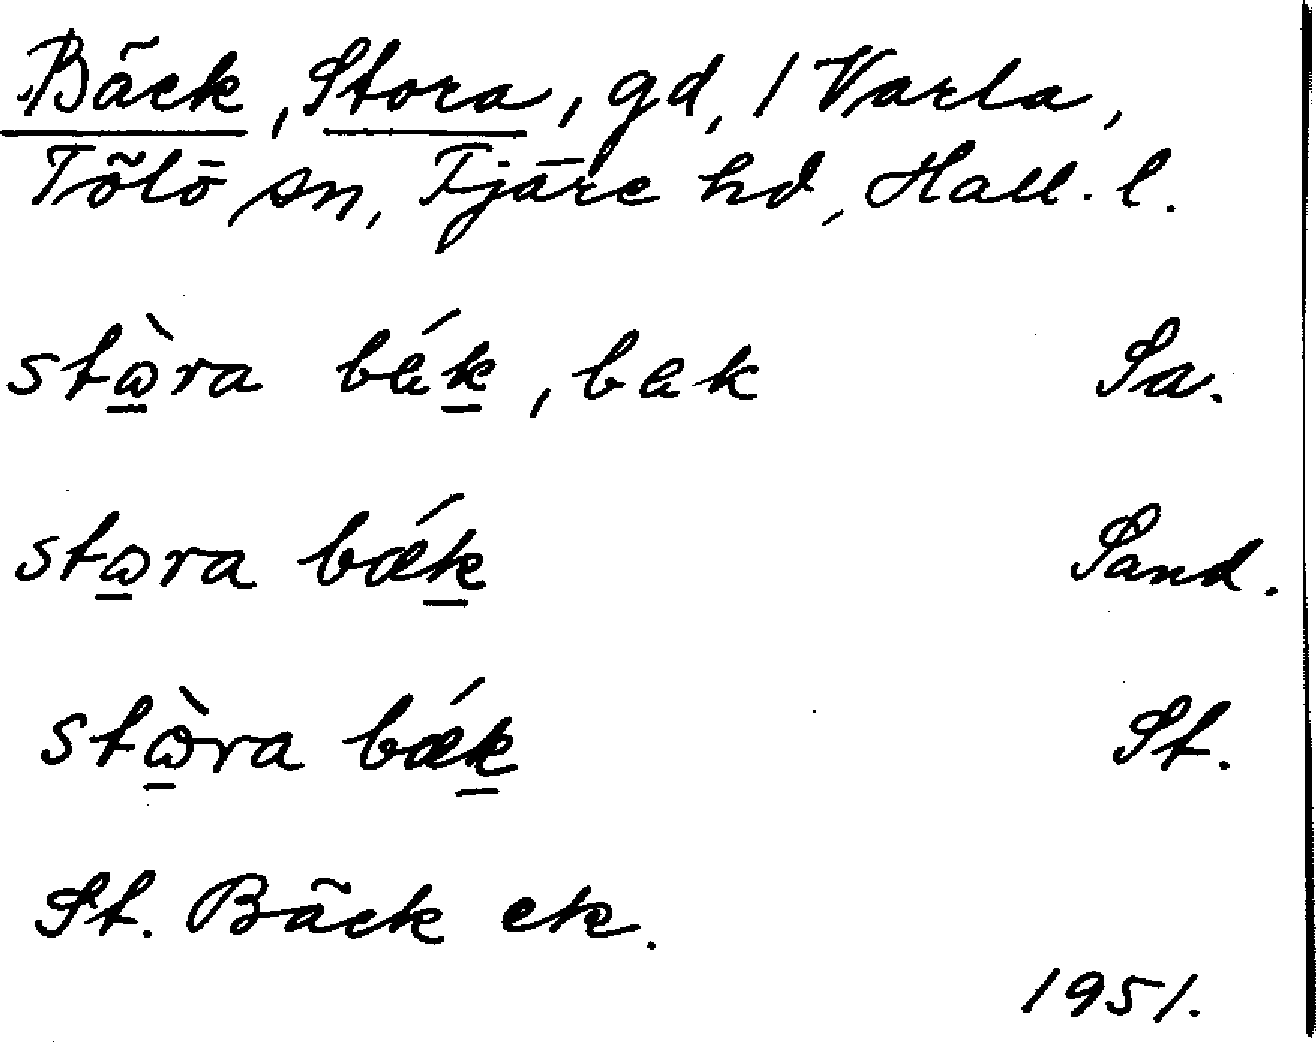 Bäck, Stora, gd, 1 Varla,
Tölö sn, Fjäre hd, Hall. l.
stὼ̲ra bák̲, bak Sa.
stω̲ra bǽk̲ Sand.
stὼ̲ra bǽk̲ St.
St. Bäck ek.
1951.